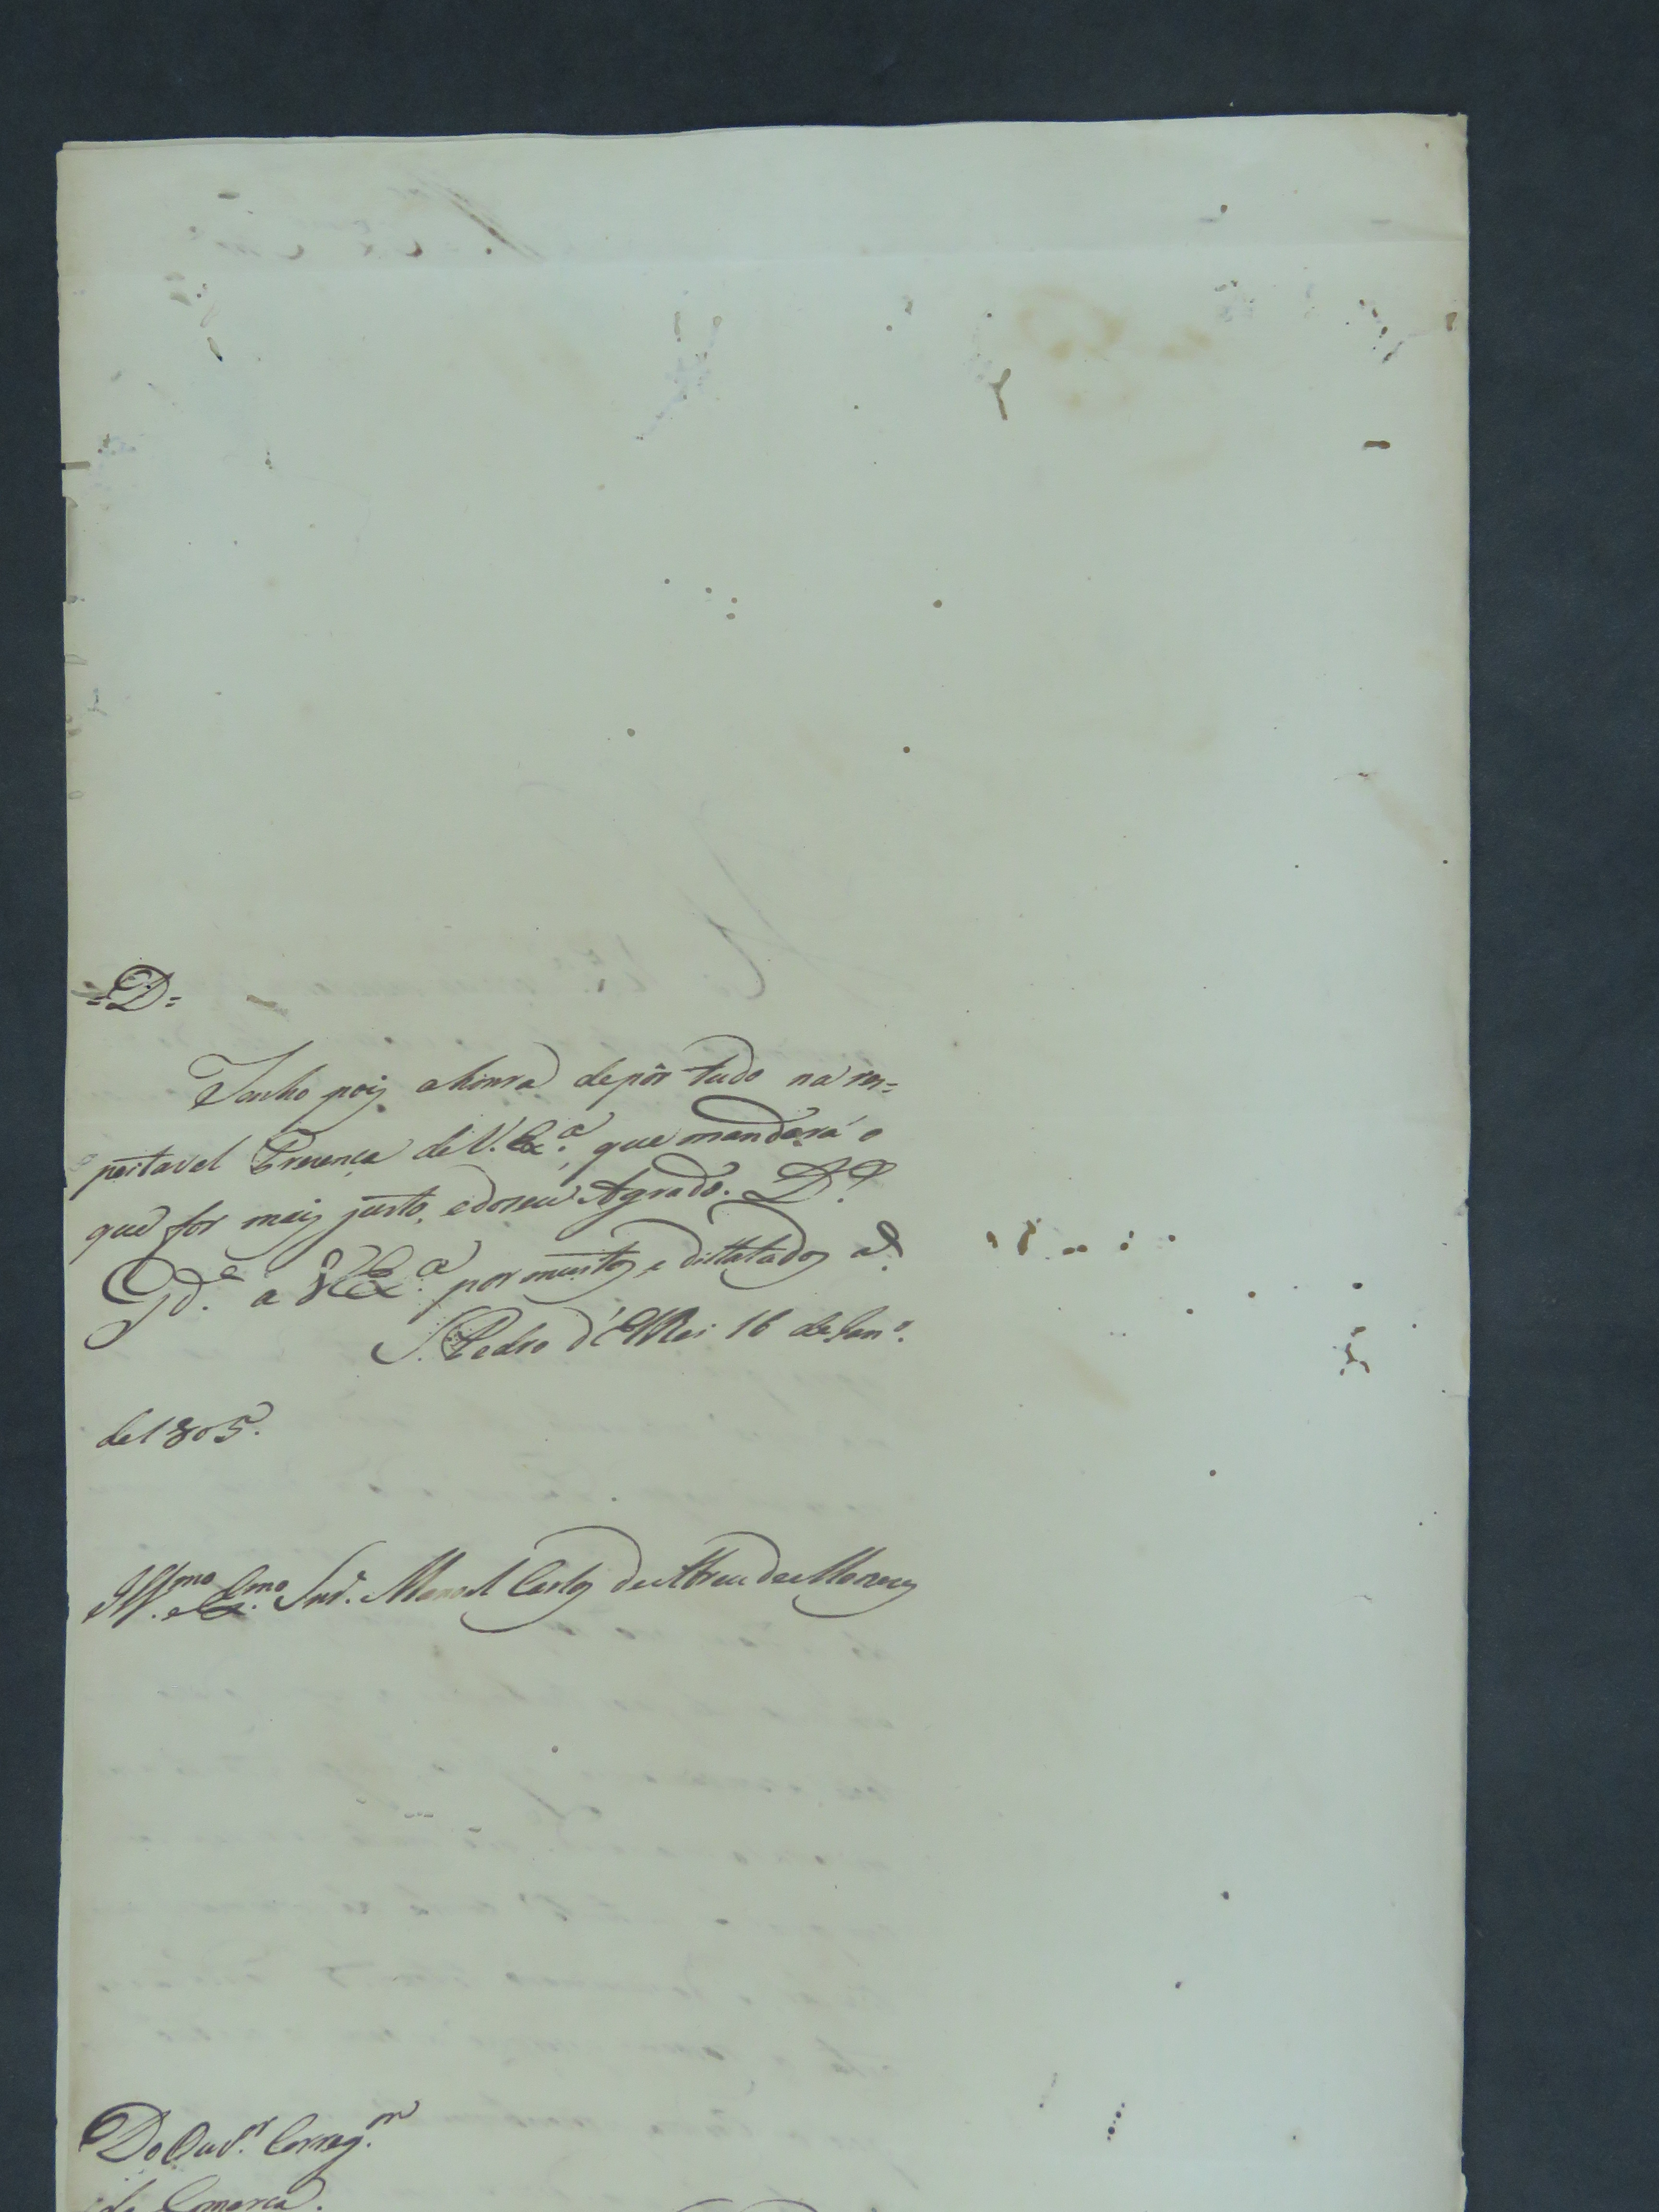 =D=
Tenho pois ahonra depôr tudo na res=
peitavel Prezença de V. Ex.ª, que mandará o
que for mais justo, edoseu Agrado. D.s
G.de a V.Ex.ª por muitos e dillatados a.s
S. Pedro d'ElRei 16 de Jan.o
de 1805.
Ill.mo e Ex.mo Snr. Manoel Carlos de Abreu de Menezes
Do Ouv.r Correg.or
da Comarca.